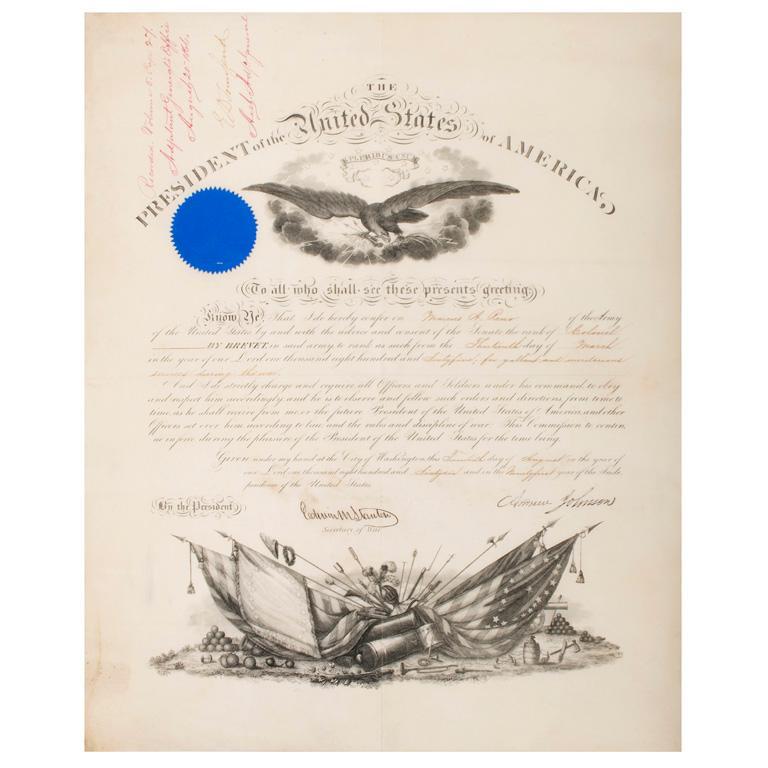 Recorded Volume 5 Page 27
Adjutant General's Office
August 20 1866.
E D Townsend
Asst Adjt General
THE
PRESIDENT of the United States of AMERICA,
E PLURIBUS UNUM
To all who shall see these presents greeting:
Know Ye, That I do hereby confer on Marcus A. Reno of the Army
of the United States by and with the advice and consent of the Senate the rank of Colonel
BY BREVET, in said army to rank as such from the Thirteenth day of March
in the year of our Lord one thousand eight hundred and Sixtyfive, for gallant and meritorious
services during the war.
And I do strictly charge and require all Officers and Soldiers under his command to obey
and respect him accordingly; and he is to observe and follow such orders and directions from time to
time, as he shall receive from me, or the future President of the United States of America, and other
Officers set over him according to law, and the rules and discipline of war. This Commission to contin
ue in force during the pleasure of the President of the United States for the time being.
Given under my hand at the City of Washington, this day of August in the year of
our Lord one thousand eight hundred and Sixtysix and in the Ninetyfirst year of the Inde
pendence of the United States.
By the President
Edwin M Stanton
Secretary of War
Andrew Johnson